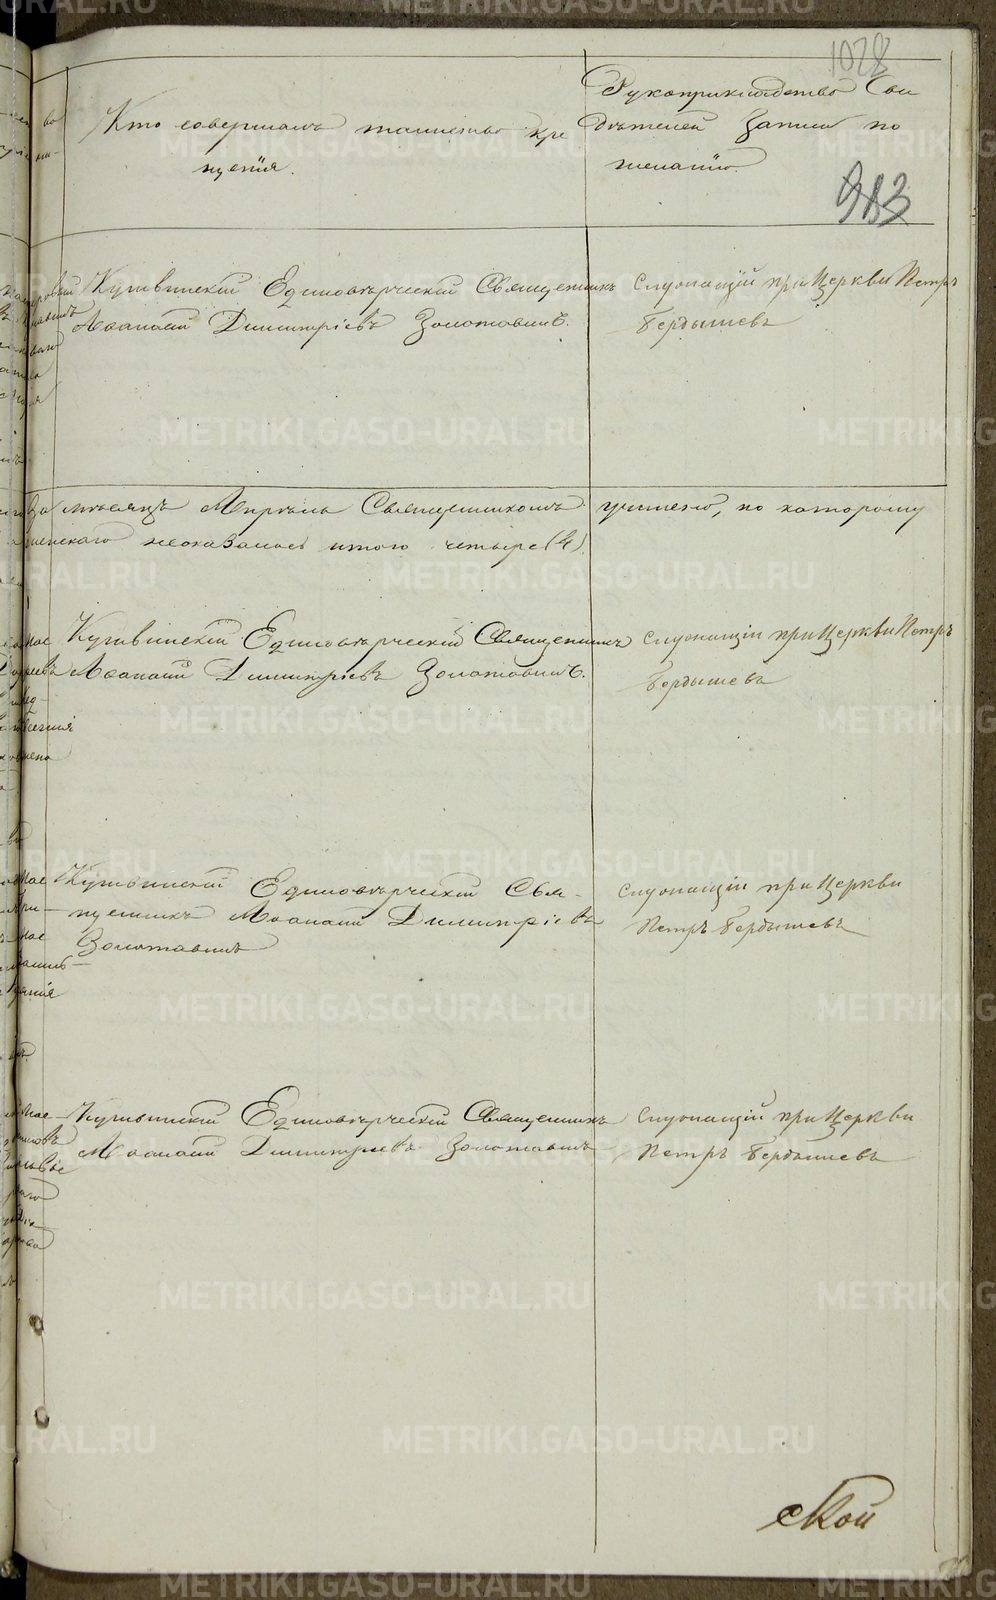 1028
Кто совершалъ таинство кре
щенія.
Рукоприкладство Сви
дѣтелей записи по
желанію.
983
Кушвинскій Единовѣрческій Священникъ
Аѳанасій Димитріевъ Золотавинъ.
Служащій при Церкви Петръ
Бердышевъ
За мѣсяцъ Апрѣль Священникомъ учинено, по которому
неоказалось итого четыре (4).
Кушвинскій Единовѣрческій Священникъ
Аѳанасій Димитріевъ Золотавинъ.
Служащій при Церкви Петръ
Бердышевъ
Кушвинскій Единовѣрческій Свя-
щенникъ Аѳанасій Димитріевъ
Золотавинъ
Служащій при Церкви
Петръ Бердышевъ
Кушвинскій Единовѣрческій Священникъ
Аѳанасій Димитріевъ Золотавинъ
Служащій при Церкви
Петръ Бердышевъ
ской
METRIKI.GASO-URAL.RU